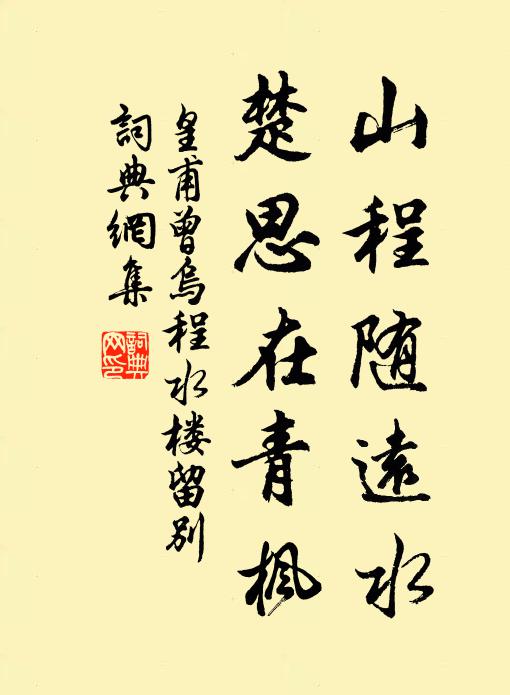 山程随遠水
楚思在青楓
皇甫曾烏程水楼留别
詞典網集
詞典
网印